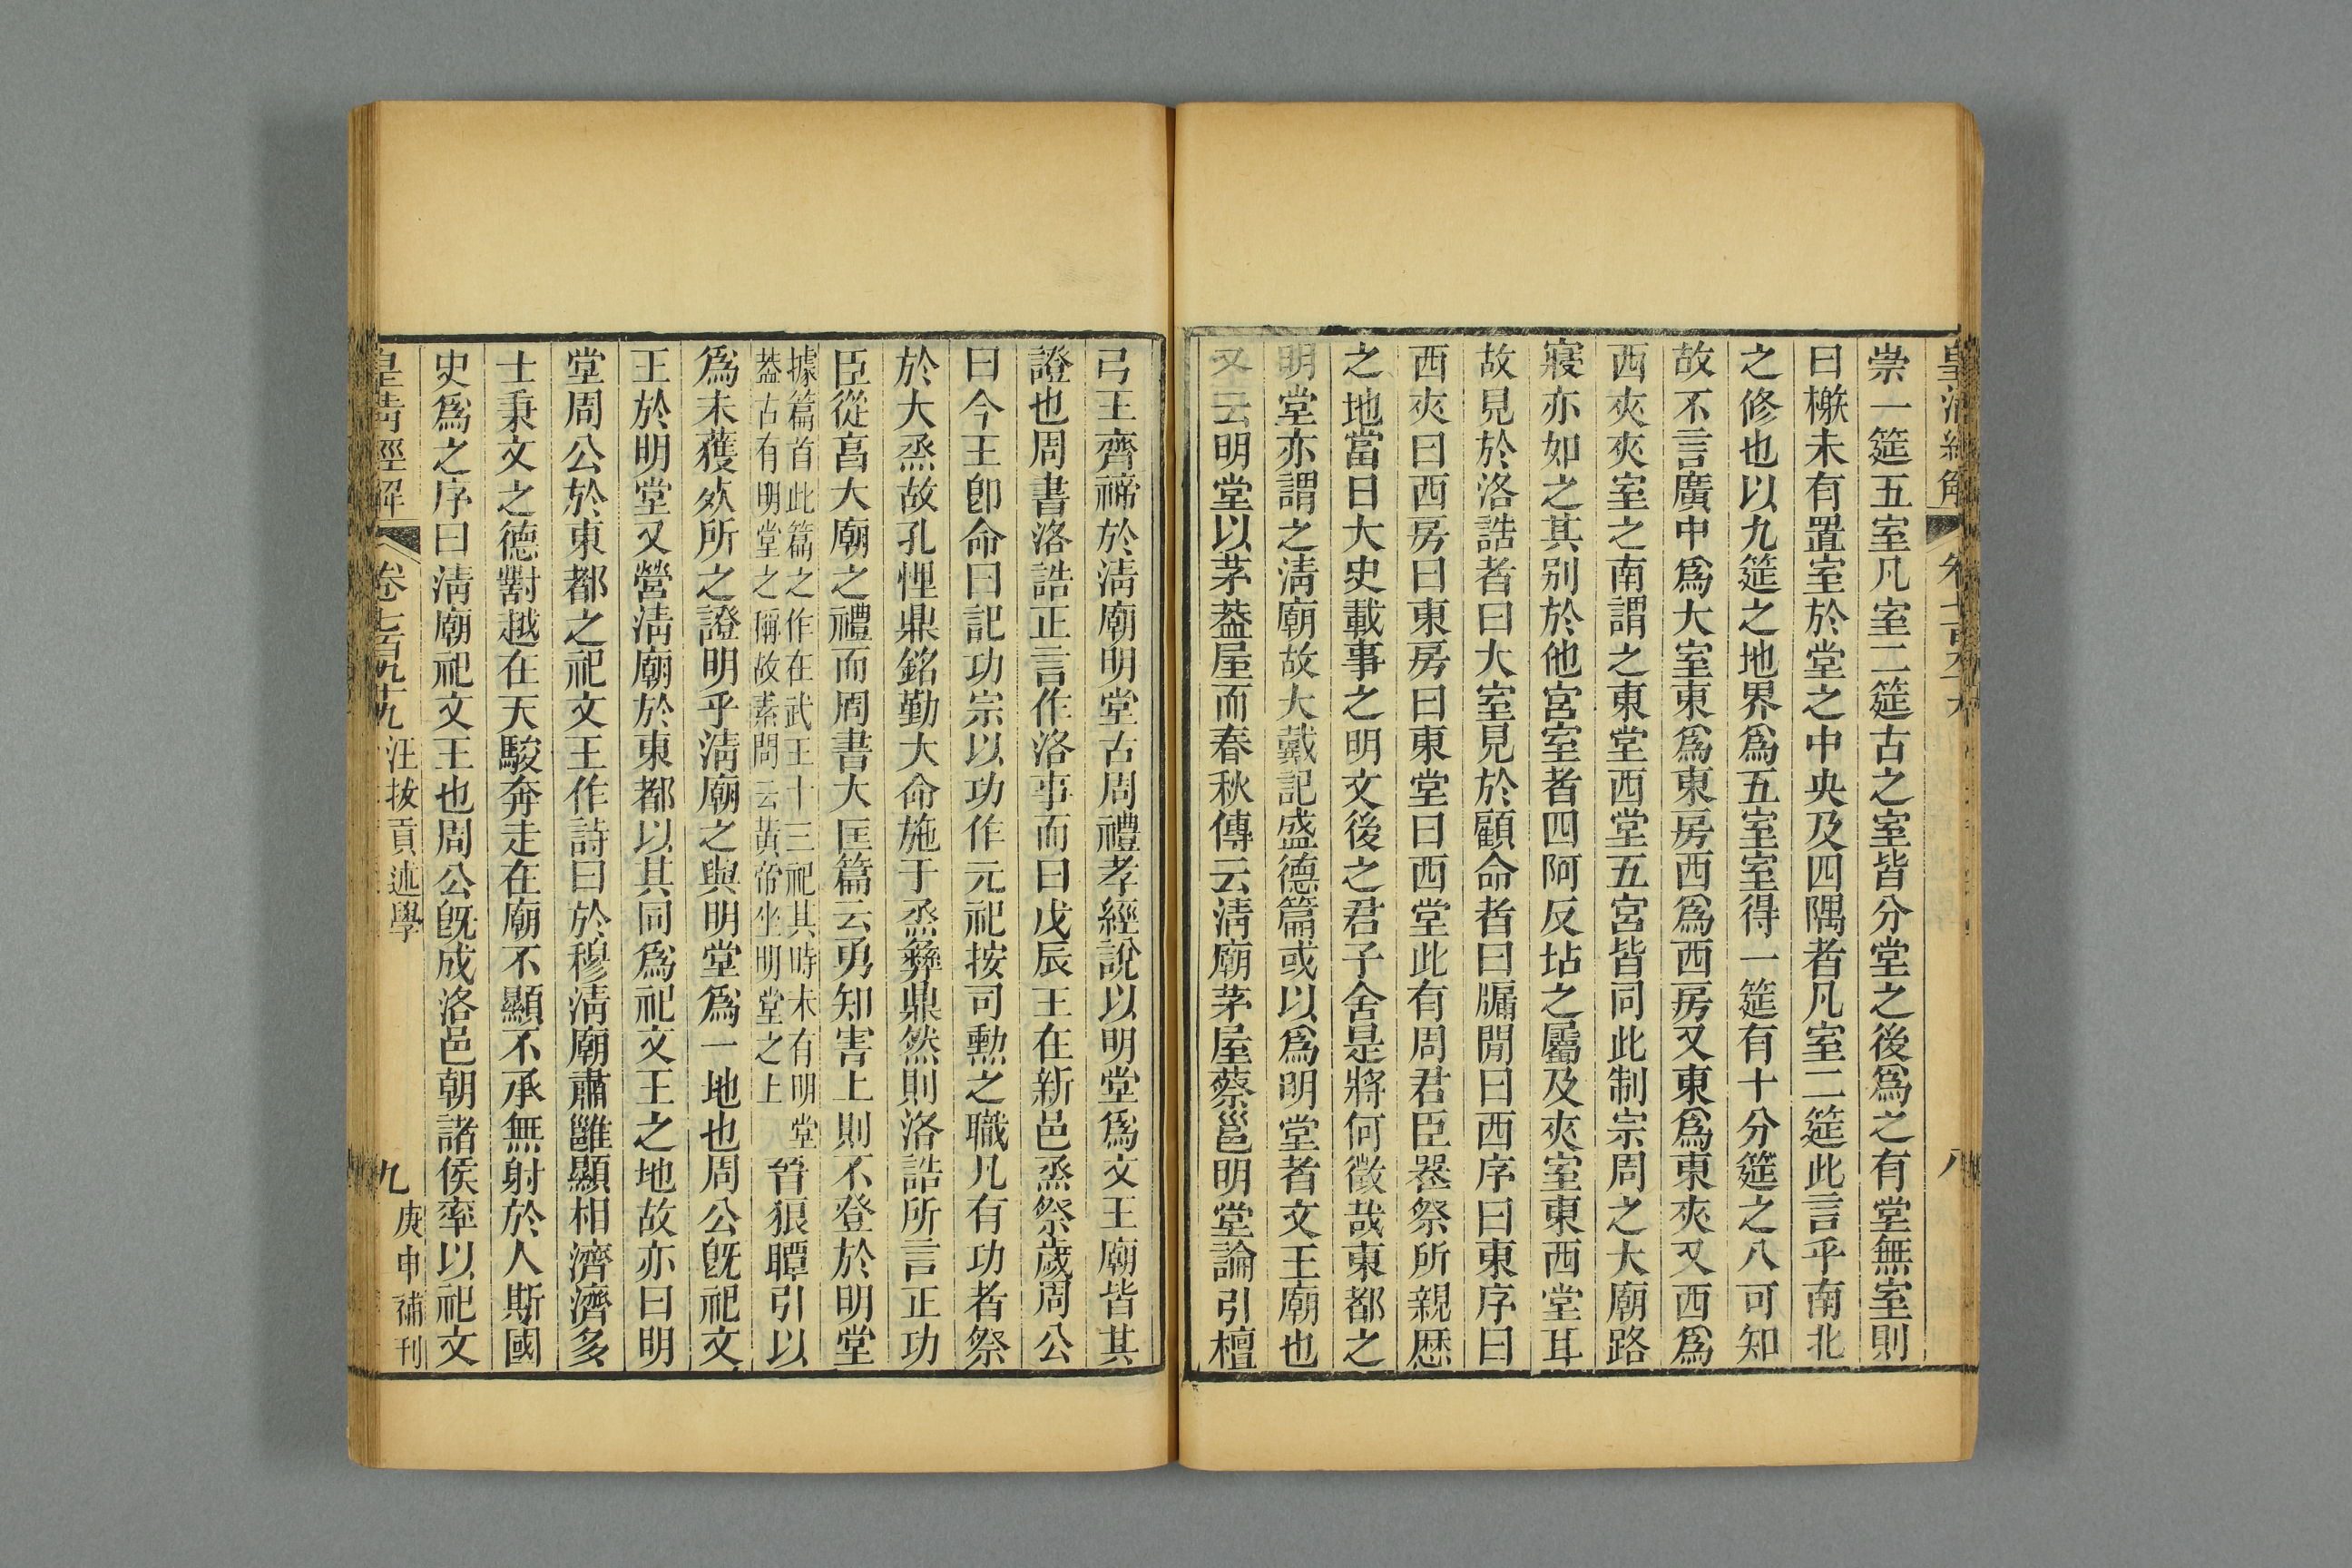 崇一筵五室凡室二筵古之室皆分堂之後爲之有堂無室則
曰榭未有置室於堂之中央及四隅者凡室二筵此言乎南北
之修也以九筵之地界爲五室室得一筵有十分筵之八可知
故不言廣中爲大室東爲東房西爲西房又東爲東夾又西爲
西夾夾室之南謂之東堂西堂五宮皆同此制宗周之大廟路
寢亦如之其别於他宮室者四阿反坫之屬及夾室東西堂耳
故見於洛誥者曰大室見於顧命者曰牖閒曰西序曰東序曰
西夾曰西房曰東房曰東堂曰西堂此有周君臣器祭所親歷
之地當日大史載事之明文後之君子舍是將何徵哉東都之
明堂亦謂之淸廟故大戴記盛德篇或以爲明堂者文王廟也
又云明堂以茅葢屋而春秋傳云淸廟茅屋蔡邕明堂論引檀
弓王齊禘於淸廟明堂古周禮孝經說以明堂爲文王廟皆其
證也周書洛誥正言作洛事而曰戊辰王在新邑烝祭歲周公
曰今王卽命曰記功宗以功作元祀按司勲之職凡有功者祭
於大烝故孔悝鼎銘勤大命施于烝彝鼎然則洛誥所言正功
臣從亯大廟之禮而周書大匡篇云勇知害上則不登於明堂
據篇首此篇之作在武王十三祀其時未有明堂
葢古有明堂之稱故素問云黃帝坐明堂之上
晉狼瞫引以
爲未獲死所之證明乎淸廟之與明堂爲一地也周公旣祀文
王於明堂又營淸廟於東都以其同爲祀文王之地故亦曰明
堂周公於東都之祀文王作詩曰於穆淸廟肅雝顯相濟濟多
士秉文之德對越在天駿奔走在廟不顯不承無射於人斯國
史爲之序曰淸廟祀文王也周公旣成洛邑朝諸侯率以祀文
皇淸經解
卷七百九十九
汪拔貢述學
九
庚申補刊